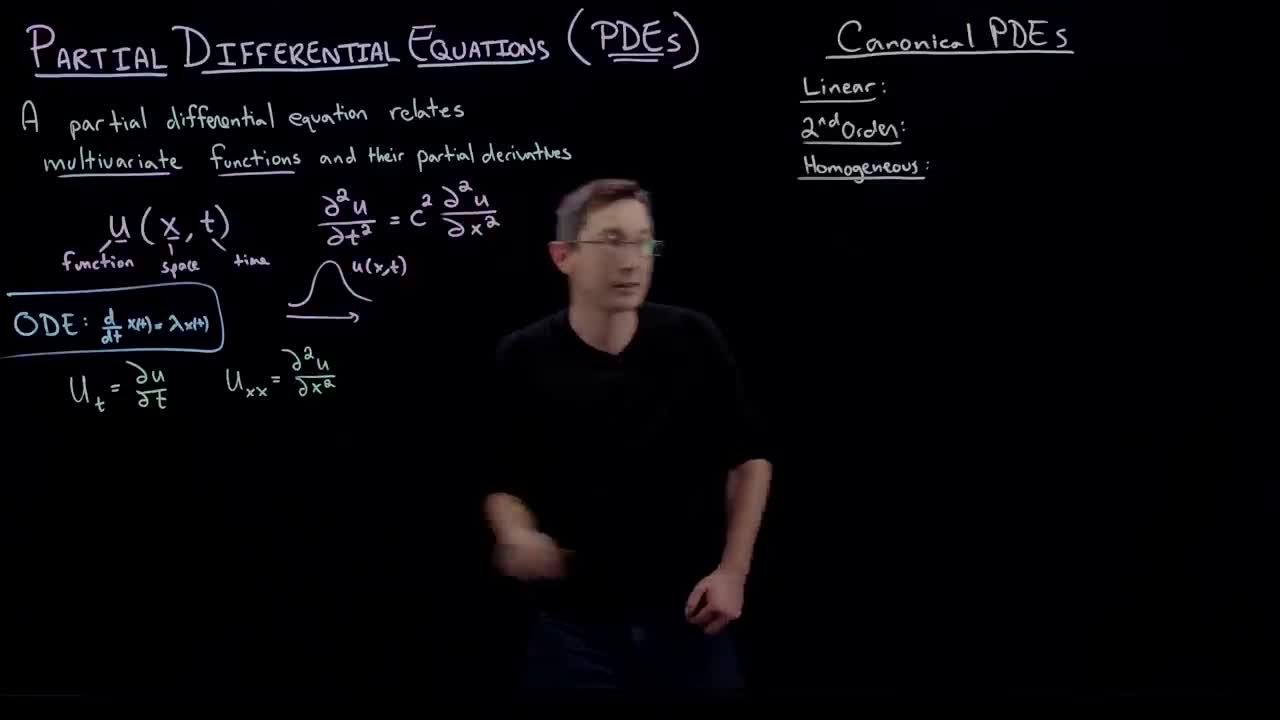 PARTIAL DIFFERENTIAL EQUATIONS (PDEs)
A partial differential equation relates
multivariate functions and their partial derivatives
u(x,t)
function space time
∂²u/∂t² = c² ∂²u/∂x²
u(x,t)
ODE: d/dt x(t) = λx(t)
U_t = ∂u/∂t
U_xx = ∂²u/∂x²
Canonical PDEs
Linear:
2nd Order:
Homogeneous: